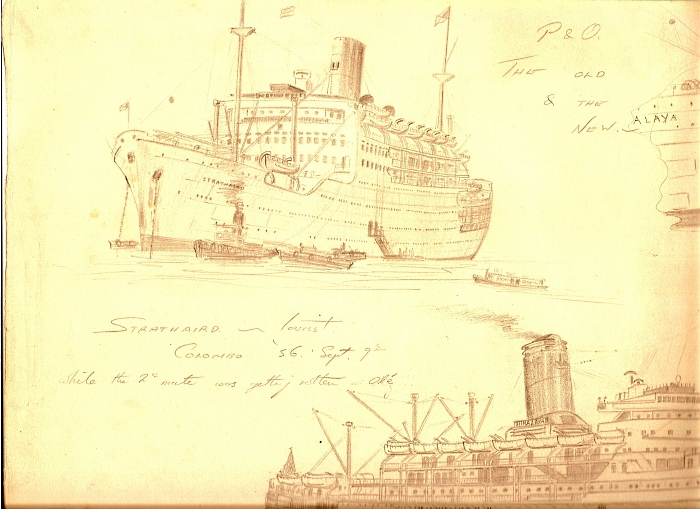 P & O.
THE OLD
& THE
NEW
ALAYA
STRATHAIRD
STRATHAIRD — Tourist
Colombo '56. Sept. 9
while the 2 mate was getting rotten — Olé